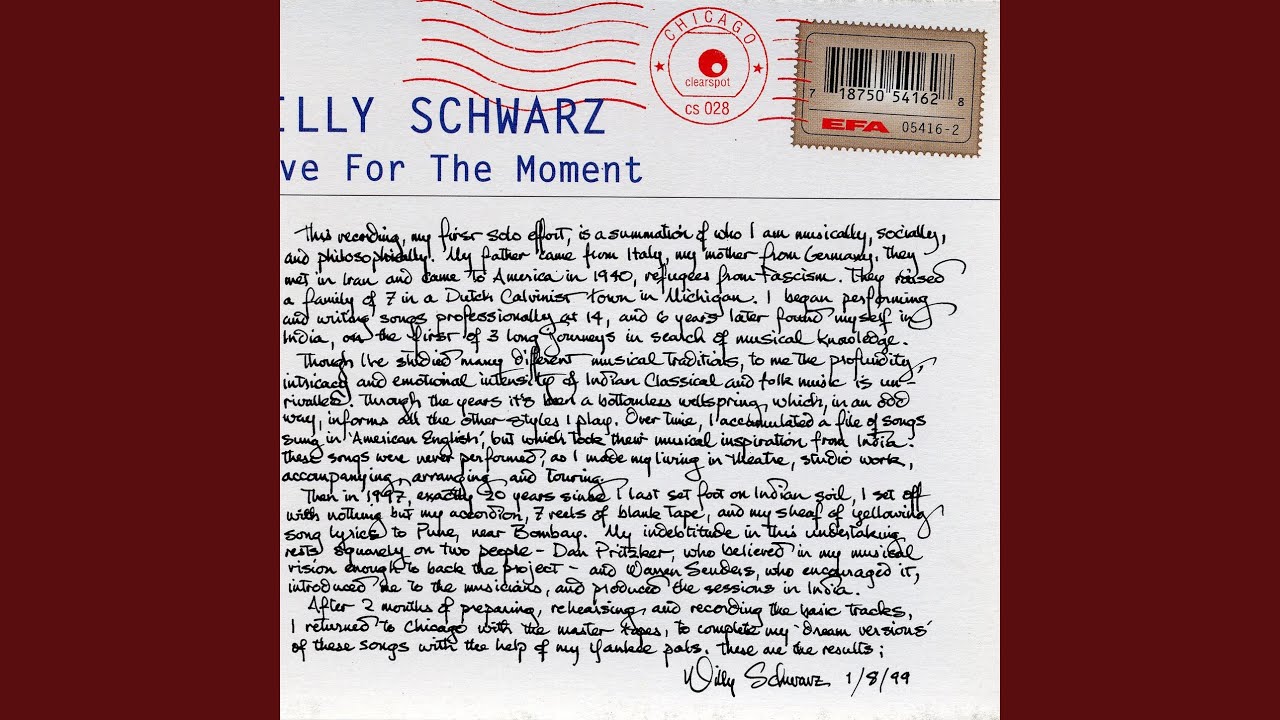 CHICAGO
clearspot
cs 028
7 18750 54162 8
EFA 05416-2
ILLY SCHWARZ
ve For The Moment
This recording, my first solo effort, is a summation of who I am musically, socially,
and philosophically. My father came from Italy, my mother from Germany. They
met in Iran and came to America in 1940, refugees from Fascism. They raised
a family of 7 in a Dutch Calvinist town in Michigan. I began performing
and writing songs professionally at 14, and 6 years later found myself in
India, on the first of 3 long journeys in search of musical knowledge.
Though I've studied many different musical traditions, to me the profundity,
intricacy and emotional intensity of Indian Classical and folk music is un-
rivalled. Through the years it's been a bottomless wellspring, which, in an odd
way, informs all the other styles I play. Over time, I accumulated a file of songs
sung in 'American English', but which took their musical inspiration from India.
These songs were never performed, as I made my living in theatre, studio work,
accompanying, arranging and touring.
Then in 1997, exactly 20 years since I last set foot on Indian soil, I set off
with nothing but my accordion, 7 reels of blank tape, and my sheaf of yellowing
song lyrics to Pune, near Bombay. My indebtitude in this undertaking
rests squarely on two people - Dan Pritzker, who believed in my musical
vision enough to back the project - and Warren Senders, who encouraged it,
introduced me to the musicians, and produced the sessions in India.
After 2 months of preparing, rehearsing, and recording the basic tracks,
I returned to Chicago with the master tapes, to complete my 'dream versions'
of these songs with the help of my Yankee pals. These are the results;
Willy Schwarz 1/8/99